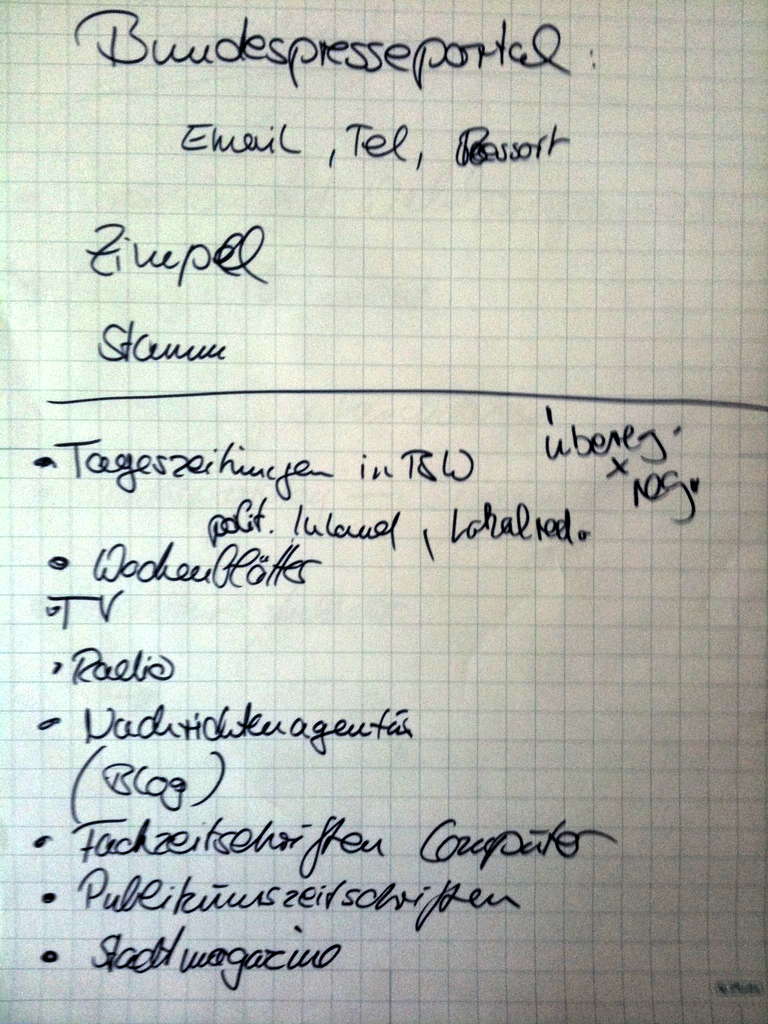 Bundespresseportal:
Email, Tel, Ressort
Zimpel
Stamm
• Tageszeitungen in BW
überreg.
x reg.
polit. Inland, Lokalred.
• Wochenblätter
• TV
• Radio
• Nachrichtenagentur
(Blog)
• Fachzeitschriften Computer
• Publikumszeitschriften
• Stadtmagazine